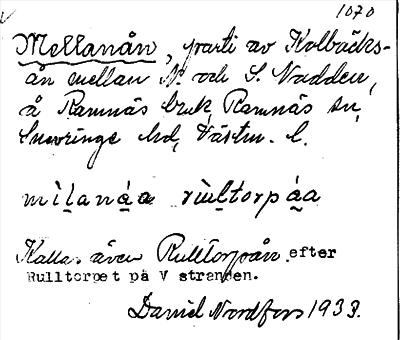 1070
Mellanån, parti av Kolbäcks-
ån mellan N. och S. Nadden,
å Ramnäs bruk, Ramnäs sn,
Snevringe hd, Västm. l.
Kallas även Rulltorpån efter
Rulltorpet på V stranden.
Daniel Nordfors 1933.